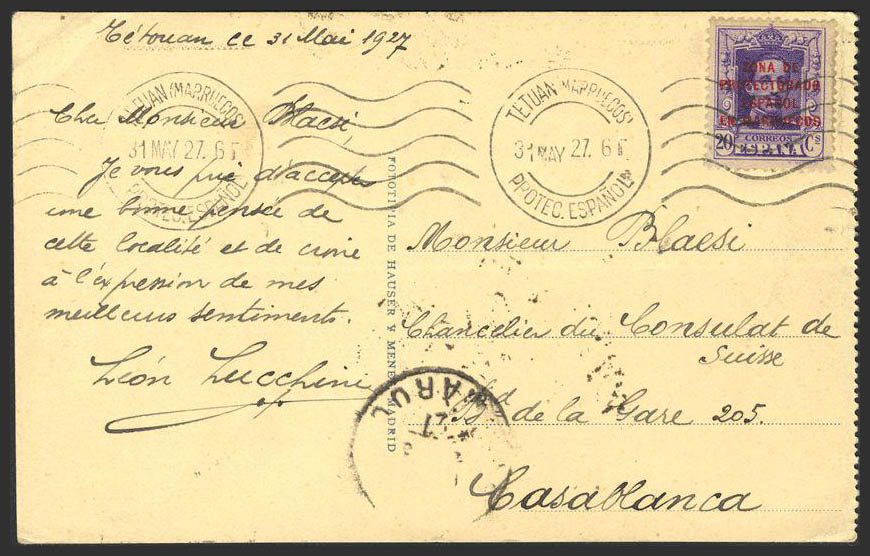 Tétouan ce 31 Mai 1927
Cher Monsieur Blaesi,
Je vous prie d'accepter
une bonne pensée de
cette localité et de croire
à l'expression de mes
meilleurs sentiments.
León Lucchini
TETUAN (MARRUECOS)
31 MAY 27. 6 T
PROTEC. ESPAÑOL
TETUAN (MARRUECOS)
31 MAY 27. 6 T
PROTEC. ESPAÑOL
ZONA DE
PROTECTORADO
ESPAÑOL
EN MARRUECOS
CORREOS
20 ESPAÑA Cs
FOTOTIPIA DE HAUSER Y MENET MADRID
Monsieur Blaesi
Chancelier du Consulat de
Suisse
Bd de la Gare 205.
Casablanca
MARUE
27